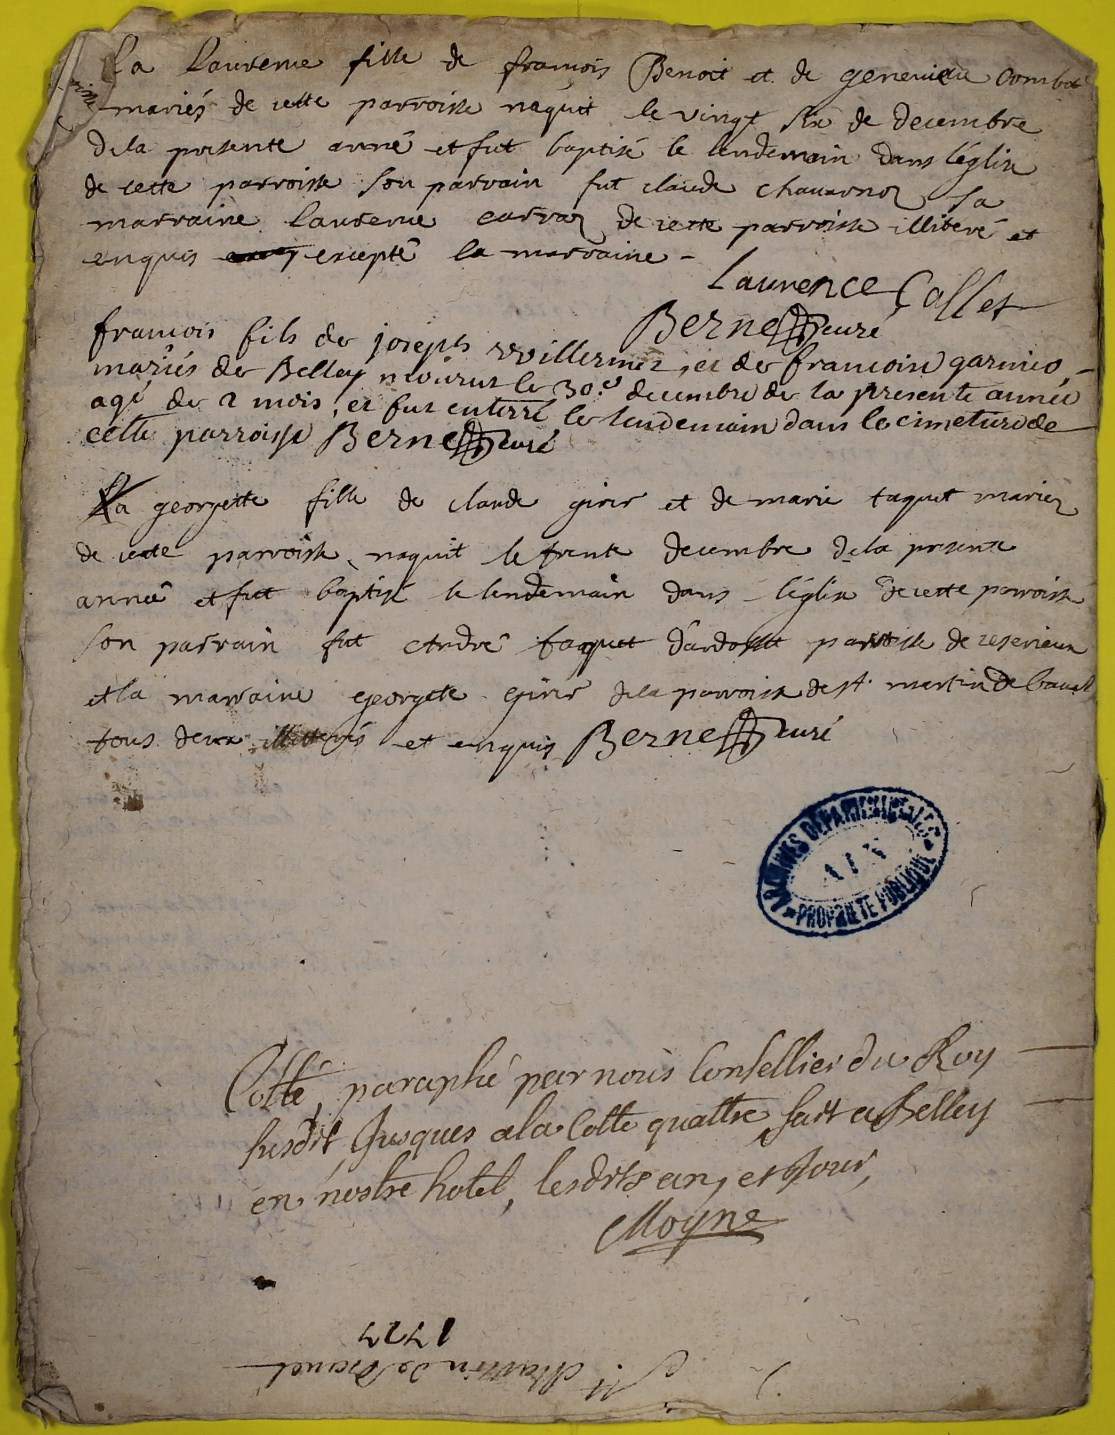 La Laurence fille de françois Benoit et de genevieve
mariés de cette parroisse naquit le vingt six de decembre
dela presente anné et fut baptisé le lendemain dans léglise
de cette parroisse Son parrain fut claude chavarnoz Sa
marraine laurence carraz de cette parroisse illiteré et
enquis excepté la marraine -
Laurence Collet
Berne curé
francois fils de joseph vuillermez, et de francoise garnier,
mariés de Belley mourut le 30e decembre de la presente année
agé de 2 mois, et fut enterré le lendemain dans le cimetiere de
cette parroisse Berne curé
La georgette fille de claude girer et de marie taquet mariez
de cette parroisse naquit le trente decembre dela presente
anneé et fut baptisé le lendemain dans léglise de cette parroisse
Son parrain fut André taquet parroisse de
et la marraine georgete girer dela parroisse de st. martin de bavel
tous deux illitterés et enquis Berne curé
ARCHIVES DÉPARTEMENTALES
AIN
PROPRIÉTÉ PUBLIQUE
Cotté, paraphé par nous Consellier du Roy
susdit Jusques ala Cotte quattre, fait a Belley
en nostre hotel, lesdits an, et Jour,
Moyne
1727
St. Martin de Bavel